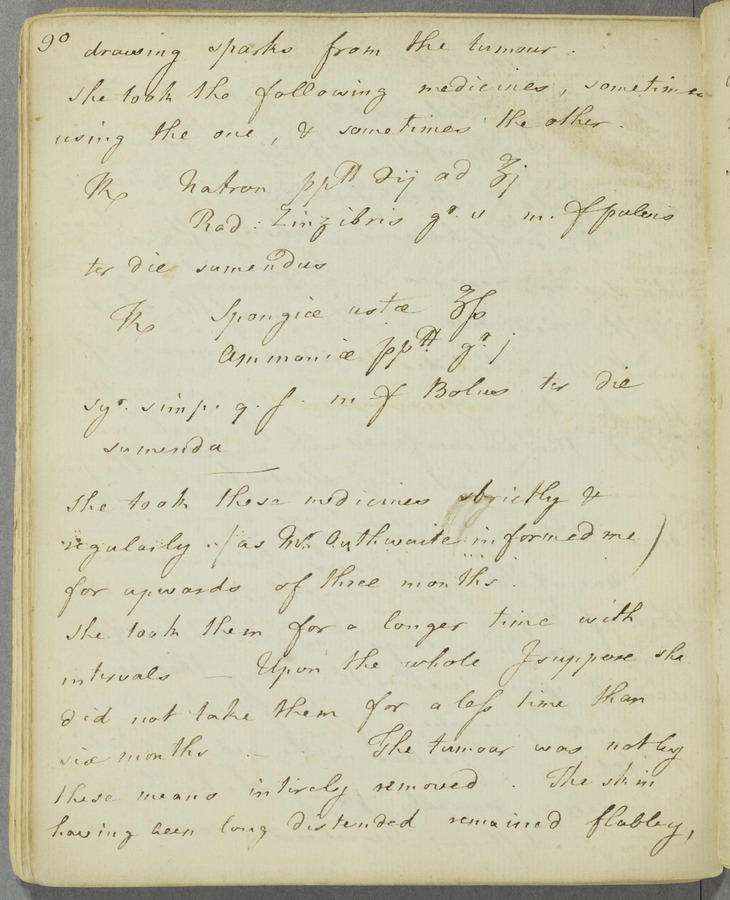 90 drawing sparks from the tumour.
she took the following medicines, sometimes
using the one, & sometimes the other.
℞ Natron pptt ℈ij ad ʒj
Rad: Zinzibris gr. v m. f pulvis
ter die sumendus
℞ Spongiæ ustæ ʒſs
Ammoniæ pptt gr j
syr. simp. q. s. m f Bolus ter die
sumenda
she took these medicines strictly &
regularly :/as Mr. Outhwaite informed me)
for upwards of three months.
she took them for a longer time with
intervals — Upon the whole I suppose she
did not take them for a leſs time than
six months — The tumour was not by
these means intirely removed. The skin
having been long distended remained flabbey,